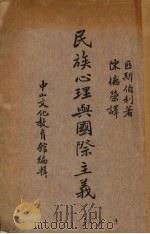 匹斯伯利著
陳德榮譯
民族心理與國際主義
中山文化教育館編輯